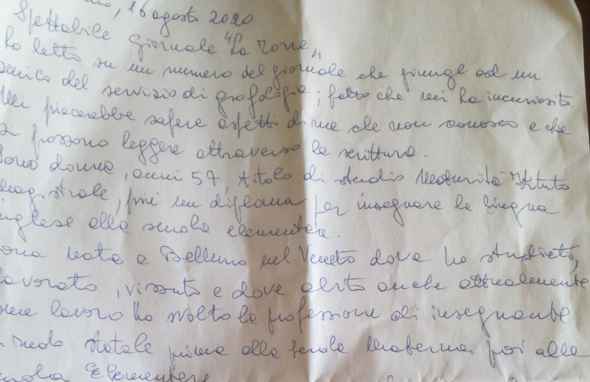 , 16 agosto 2020
Spettabile giornale "La Torre"
ho letto su un numero del giornale che giunge ad un
amica del servizio di grafologia, fatto che mi ha incuriosita
piacerebbe sapere aspetti di me che non conosco e che
si possono leggere attraverso la scrittura.
Sono donna, anni 57, titolo di studio Maturità Istituto
magistrale, poi un diploma per insegnare la lingua
inglese alla scuola elementare.
Sono nata a Belluno nel Veneto dove ho studiato,
lavorato, vissuto e dove abito anche attualmente
come lavoro ho svolto la professione di insegnante
ruolo statale prima alla scuola materna, poi alla
scuola Elementare